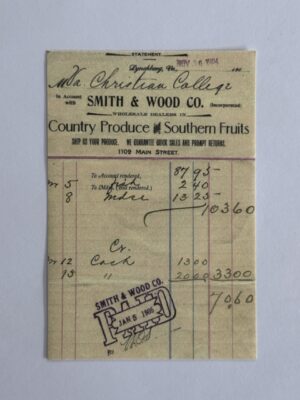 STATEMENT
NOV 26 1904
Lynchburg, Va., 190
M Va Christian College
In Account with SMITH & WOOD CO. (Incorporated)
WHOLESALE DEALERS IN
Country Produce and Southern Fruits
SHIP US YOUR PRODUCE. WE GUARANTEE QUICK SALES AND PROMPT RETURNS.
1109 MAIN STREET.
To Account rendered, 87 95
5 To Mdse. (Bill rendered), 2 40
8 Mdse 13 25
103 60
Cr.
12 Cash 13 00
15 " 20 00 33 00
70 60
SMITH & WOOD CO.
PAID
JAN 5 1905
BY